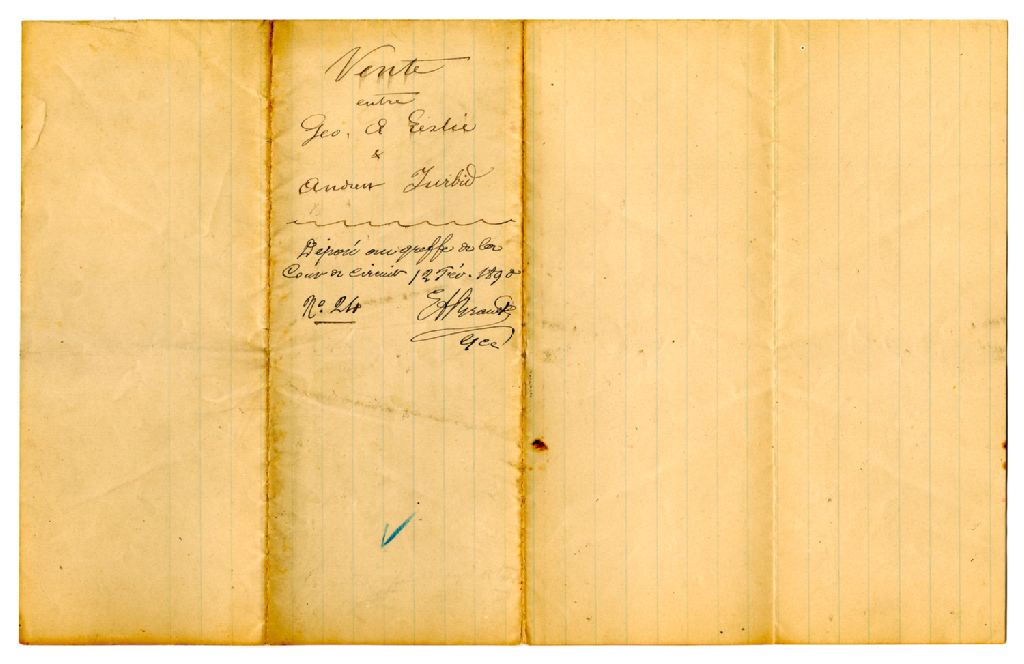 Vente
entre
Geo. A Leslie
&
Andrew Turbid
Déposé au greffe de la
Cour de Circuit 12 Fév. 1890
No. 24
GCC